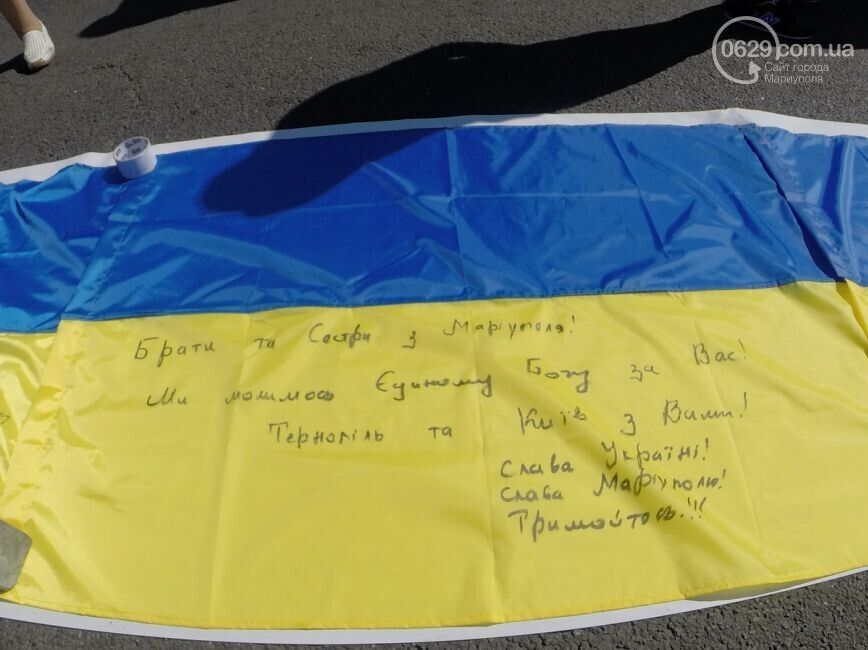 0629.com.ua
Сайт города
Мариуполя
Брати та Сестри з Маріуполя!
Ми молимось Єдиному Богу за Вас!
Тернопіль та Київ з Вами!
Слава Україні!
Слава Маріуполю!
Тримайтось!!!